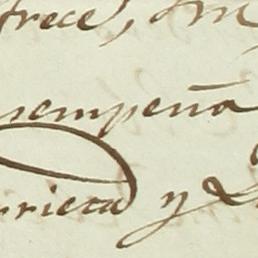 frece,
sempeña
rrieta y